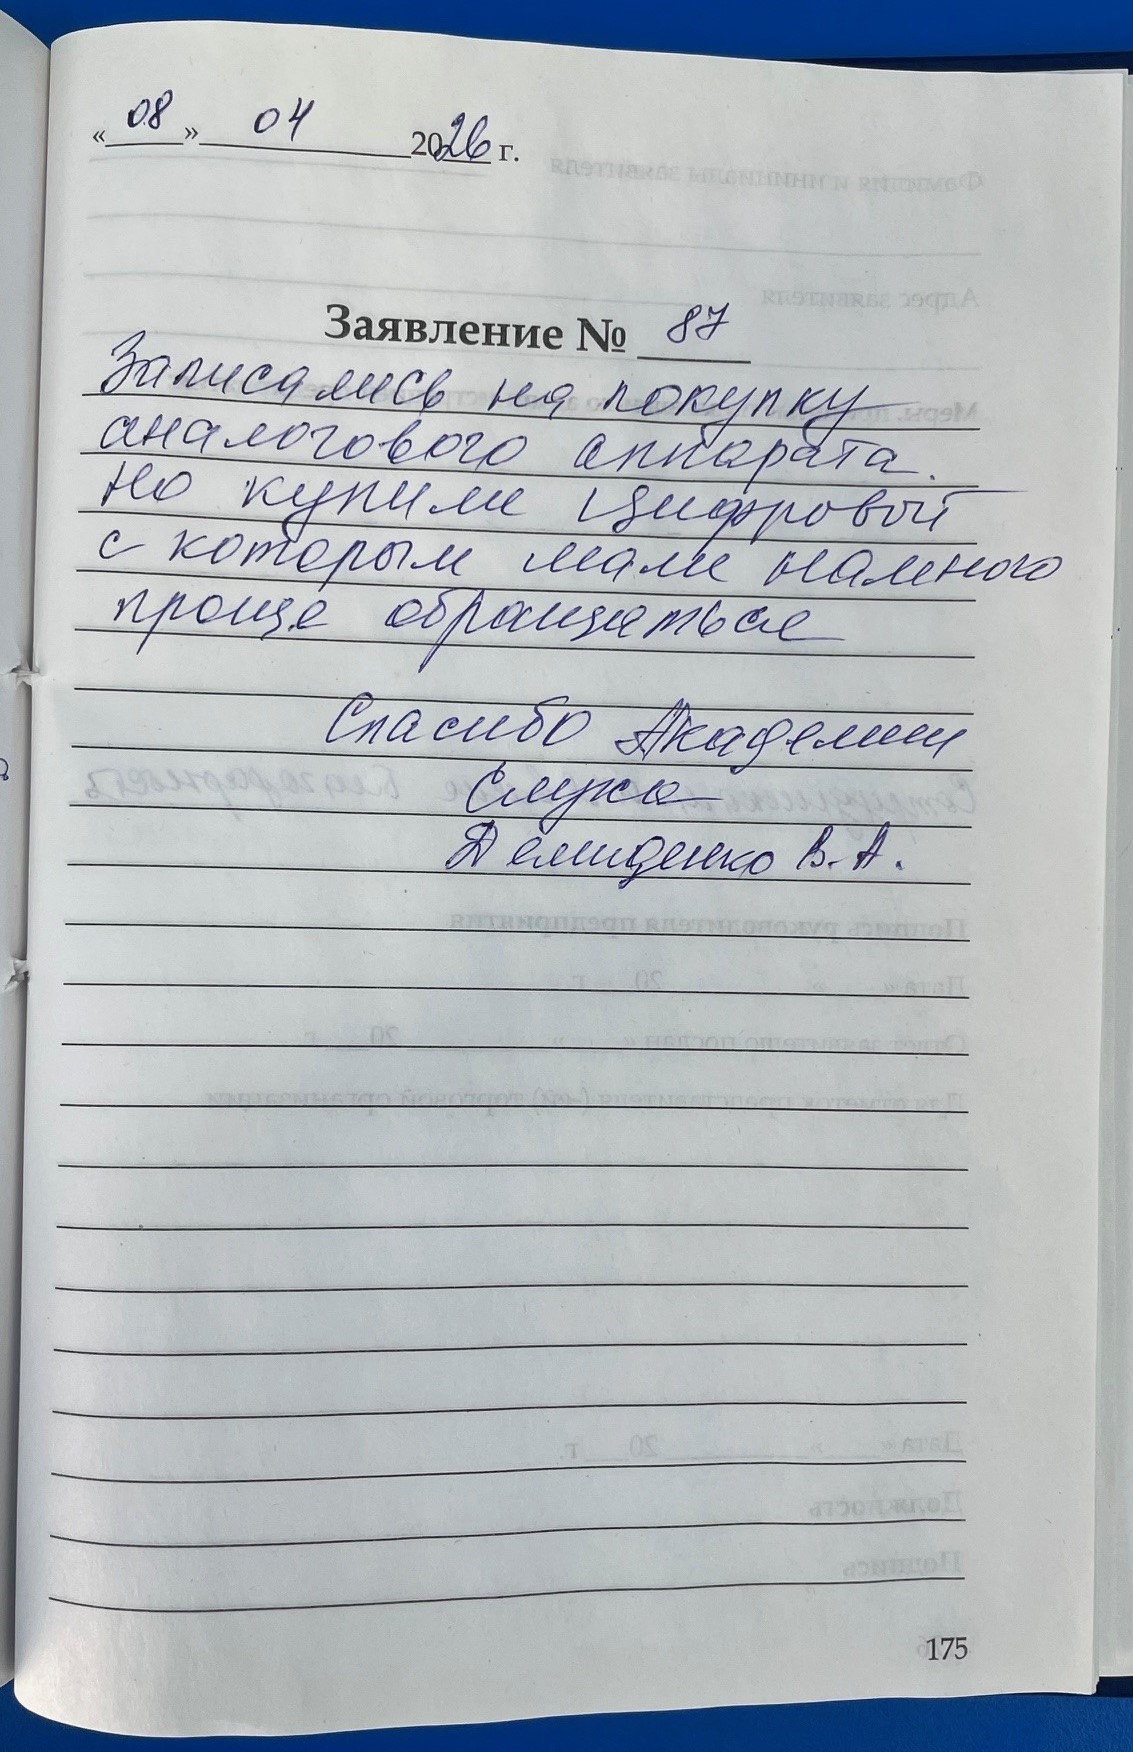 «08» 04 2026 г.
Заявление № 87
Записались на покупку
аналогового аппарата.
Но купили цифровой
с которым маме намного
проще обращаться
Спасибо Академии
Слуха
Демиденко В.А.
175